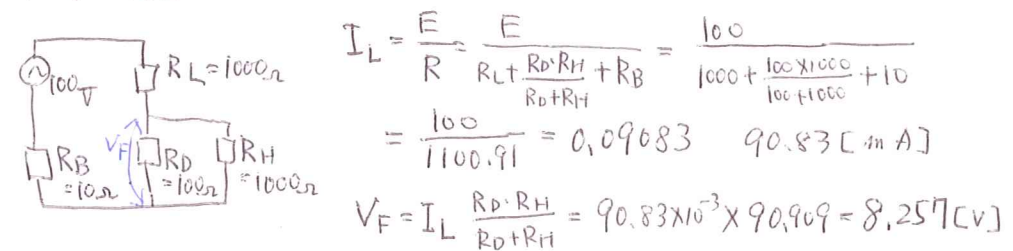 100V
R_L=1000Ω
R_B
=10Ω
V_F
R_D
=100Ω
R_H
=1000Ω
I_L = E/R = E/(R_L + (R_D·R_H)/(R_D+R_H) + R_B) = 100/(1000 + (100×1000)/(100+1000) + 10)
= 100/1100.91 = 0,09083 90.83[mA]
V_F = I_L (R_D·R_H)/(R_D+R_H) = 90,83×10⁻³ × 90,909 = 8,257[V]